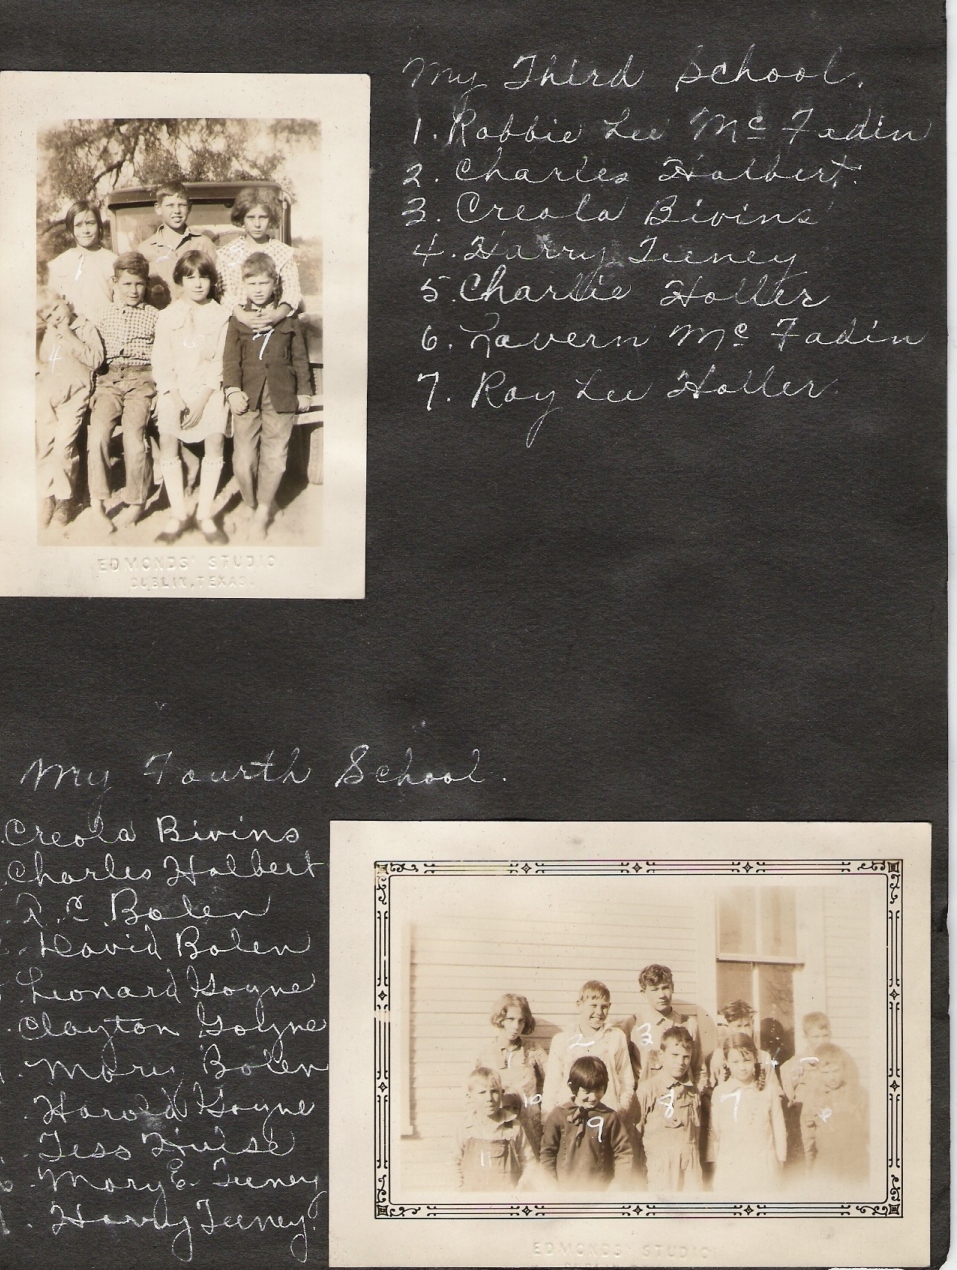 My Third School.
1. Robbie Lee Mc Fadin
2. Charles Halbert.
3. Creola Bivins
4. Harry Teeney
5. Charlie Holler
6. Lavern Mc Fadin
7. Ray Lee Holler
1
4
6
7
EDMONDS' STUDIO
DUBLIN, TEXAS.
My Fourth School.
Creola Bivins
Charles Halbert
R. C. Bolen
David Bolen
Leonard Goyne
Clayton Goyne
Bolen
Harold Goyne
Tess Hulse
Mary E. Teeney
Harry Teeney.
1
2
3
4
5
10
9
8
7
6
11
EDMONDS' STUDIO